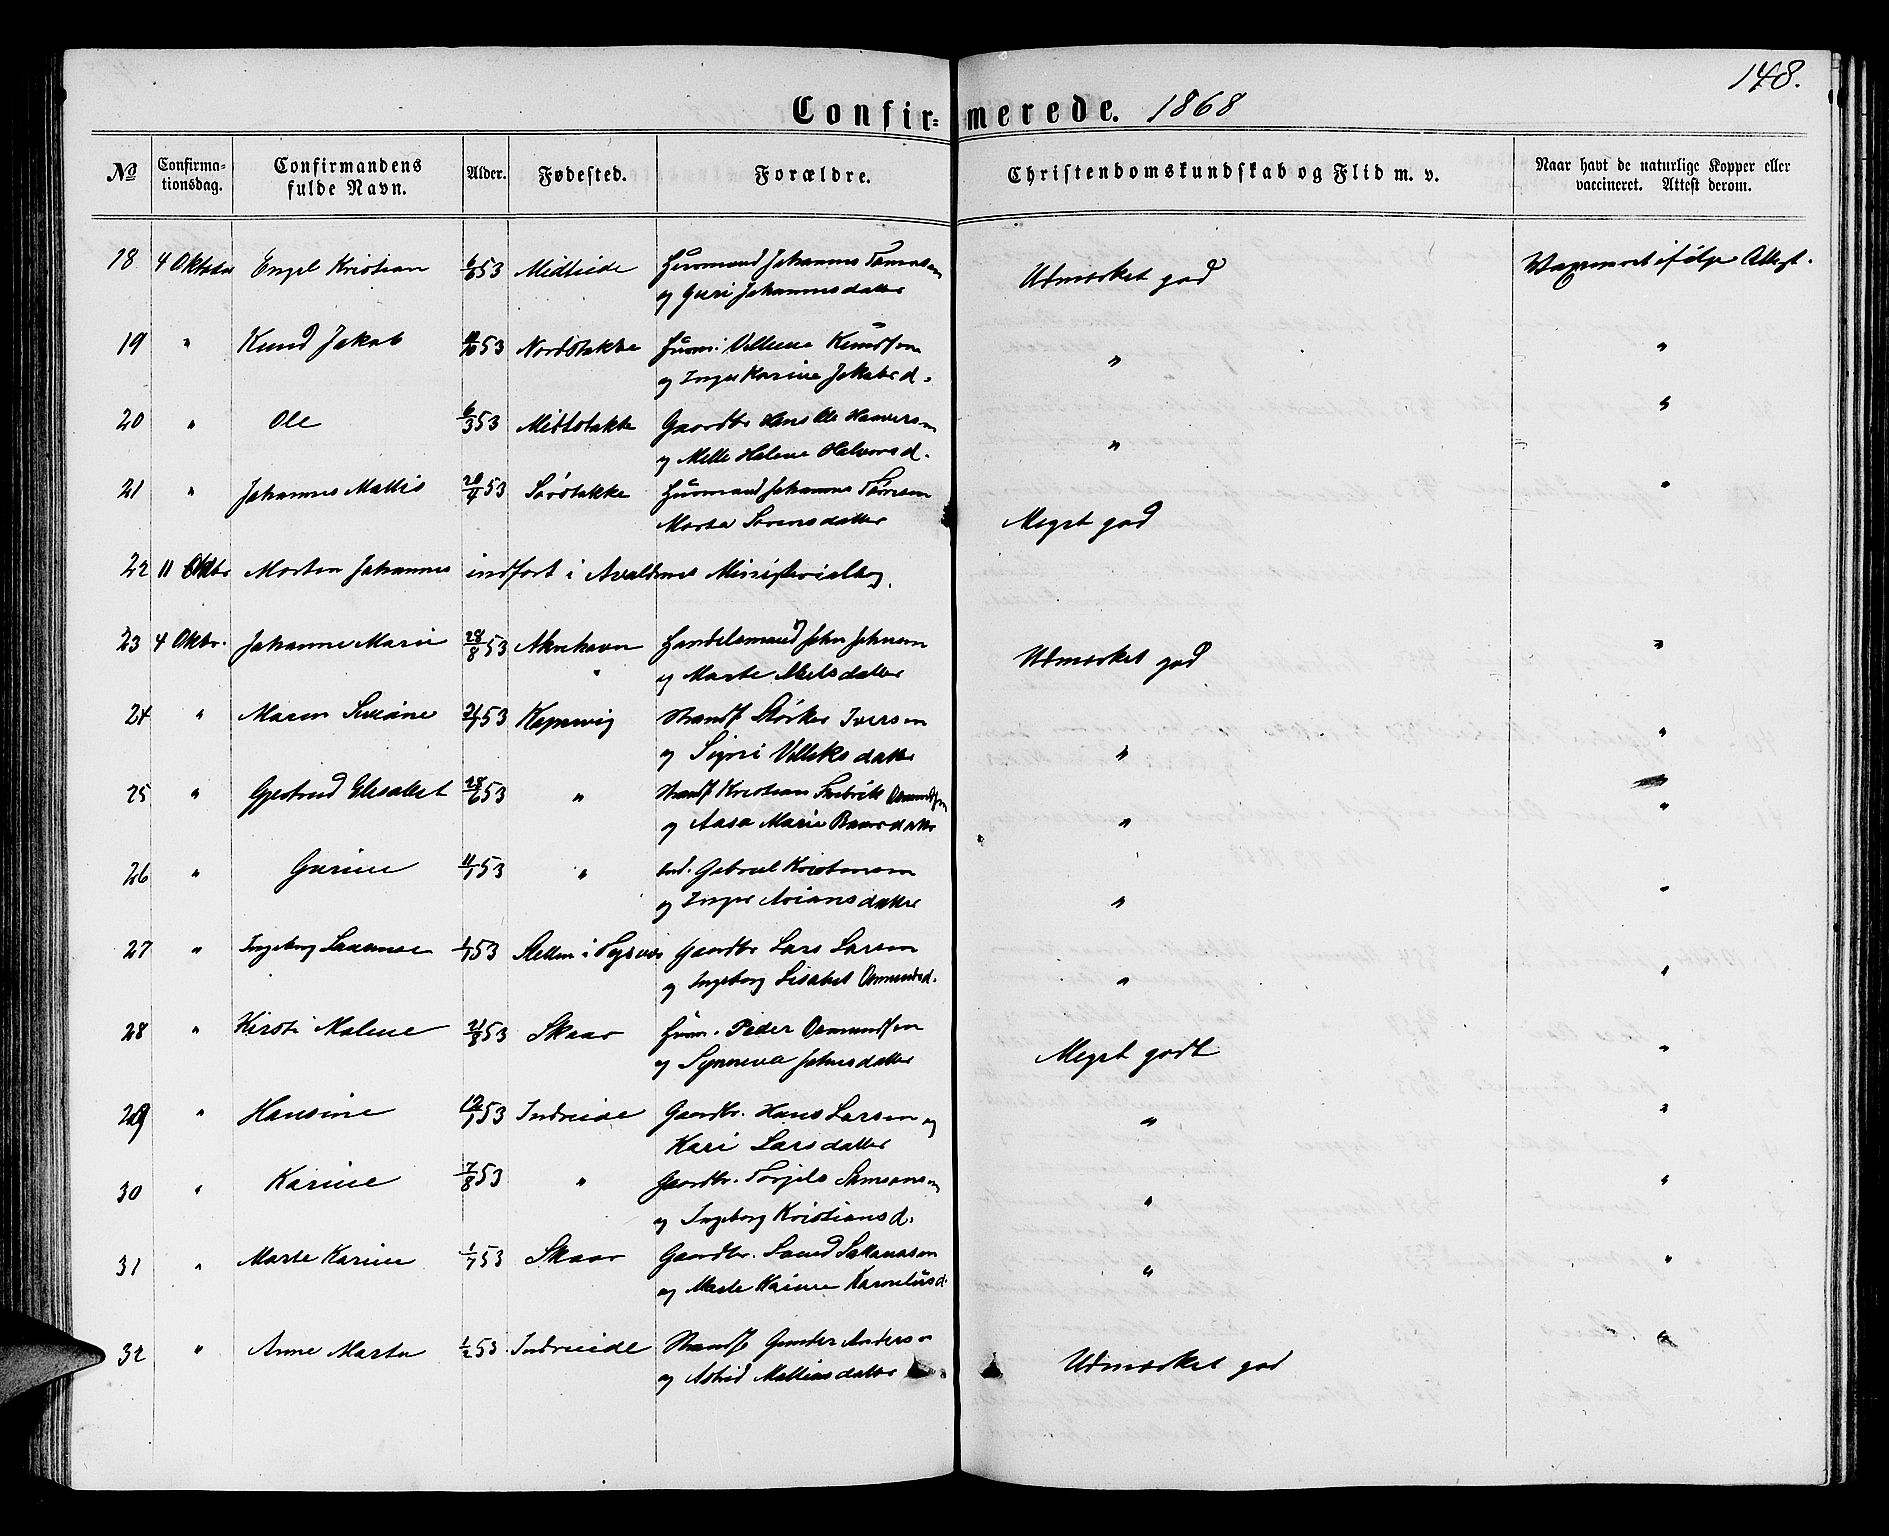 148.
Confirmerede. 1868
No Confirmationsdag. Confirmandens fulde Navn. Alder. Fødested. Forældre. Christendomskundskab og Flid m. v. Naar havt de naturlige Kopper eller vaccineret. Attest derom.
18 4 Oktober Engel Kristian 53 Husmand Johannes
og Guri Johannesdatter Udmærket god ifølge Attest.
19 " Knud Jakob 53 Nordstakke Husm: Villum Knudsen
og Inger Karine Jakobsd. " "
20 " Ole 6/3 53 Midtstakke Gaardbr Hans Ole
og Mette Helene Halvorsd. " "
21 " Johannes Mattis 53 Sørstakke Husmand Johannes
Marta Sørensdatter Meget god "
22 11 Oktbr Morten Johannes indført i Avaldsnes Ministerialbog.
23 4 Oktbr. Johanne Marie 28/8 53 Akrehavn Handelsmand John Johnsen
og Marte Nielsdatter Udmærket god "
24 " Maren 53 Kopervig Strandf Størker Iversen
og Signi datter " "
25 " Gjertrud Elisabet 28/6 53 " Strandf Kristian Osmundsen
og Aasa Marie datter " "
26 " Gurine 11/1 53 " Gabriel Kristensen
og Inger Ariansdatter " "
27 " Ingeborg 1/1 53 i Tysvær Gaardbr Lars Larsen
og Ingeborg Lisabet Osmundsd. " "
28 " Kirsti Malene 21/8 53 Skaar Husm. Peder Osmundsen
og Synneva Johnsdatter Meget godt "
29 " Hansine 12/1 53 Indreeide Gaardbr. Hans Larsen og
Kari Larsdatter " "
30 " Karine 7/8 53 " Gaardbr. Torgils Samsonsen
og Ingeborg Kristiansd. " "
31 " Marte Karine 1/7 53 Skaar Gaardbr.
og Marte Karine Korneliusd. " "
32 " Anne Marta 1/2 53 Indreeide Strandf Gunder Andersen
og Astrid Mathiasdatter Udmærket god "